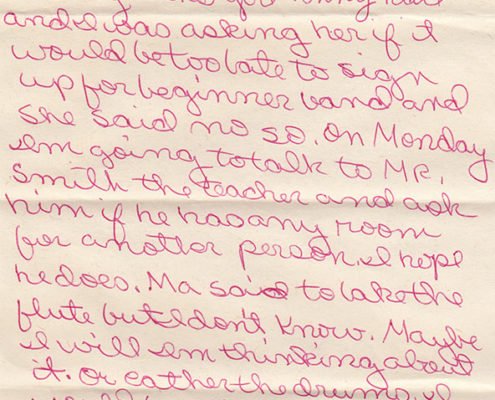 and I was asking her if it
would be too late to sign
up for beginner band and
she said no so. On Monday
im going to talk to MR.
Smith the teacher and ask
him if he has any room
for another person. I hope
he does. Ma said to take the
flute but I don't know. Maybe
I will Im thinking about
it. Or eather the drums. I